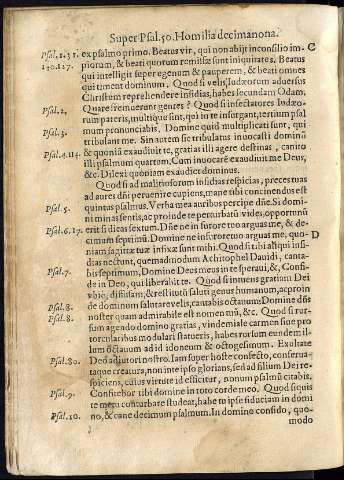 Super Psal.50. Homilia decimanona.
Psal.1.31. ex psalmo primo. Beatus vir, qui non abijt in consilio im- C
140.127. piorum, & beati quorum remissæ sunt iniquitates. Beatus
qui intelligit super egenum & pauperem, & beati omnes
qui timent dominum. Quod si vides Iudæorum aduersus
Christum reprehendere insidias, habes secundum Odam.
Psal.2. Quare fremuerunt gentes? Quod si insectatores Iudæo-
rum pateris, multique sunt, qui in te insurgant, tertium psal
Psal.3. mum pronunciabis. Domine quid multiplicati sunt, qui
tribulant me. Sin autem sic tribulatus inuocasti dominū
Psal.4.114. & quoniā exaudiuit te, gratias illi agere destinas, canito
illi psalmum quartum. Cum inuocarē exaudiuit me Deus,
&c. Dilexi quoniam exaudiet dominus.
Quod si ad malitiosorum insidias respicias, preces tuas
ad aures dñi peruenire cupiens, mane tibi concinendus est
Psal.5. quintus psalmus. Verba mea auribus percipe dñe. Si domi
ni minas sentis, ac proinde te perturbatū vides, opportunū
Psal.6.37. erit si dicas sextum. Dñe ne in furore tuo arguas me, & de-
cimum septimū. Domine ne in furore tuo arguas me, quo- D
niam sagittæ tuæ infixæ sunt mihi. Quod si tibi aliqui insi-
dias nectunt, quemadmodum Achitophel Dauidi, canta-
Psal.7. bis septimum, Domine Deus meus in te speraui, &c. Confi-
de in Deo, qui liberabit te. Quod si intuens gratiam Dei
vbiq; diffusam, & restitutū saluti genus humanum, ac proin
Psal.8. de dominum salutare velis, cantabis octauum: Domine dñs
Psal.8. noster quam admirabile est nomen tuū, &c. Quod si rur-
sum agendo domino gratias, vindemiale carmen siue pro
torcularibus modulari statueris, habes rursum eundem il-
lum octauum ad id idoneum & octogesimum. Exultate
Psal.80. Deo adiutori nostro. Iam super hoste confecto, conserua-
taque creatura, non in te ipso glorians, sed ad filium Dei re-
spiciens, cuius virtute id efficitur, nonum psalmū citabis.
Psal.9. Confitebor tibi domine in toto corde meo. Quod si quis
te metu conturbare studeat, habe te ipse fiduciam in domi
Psal.10. no, & cane decimum psalmum. In domino confido, quo-
modo